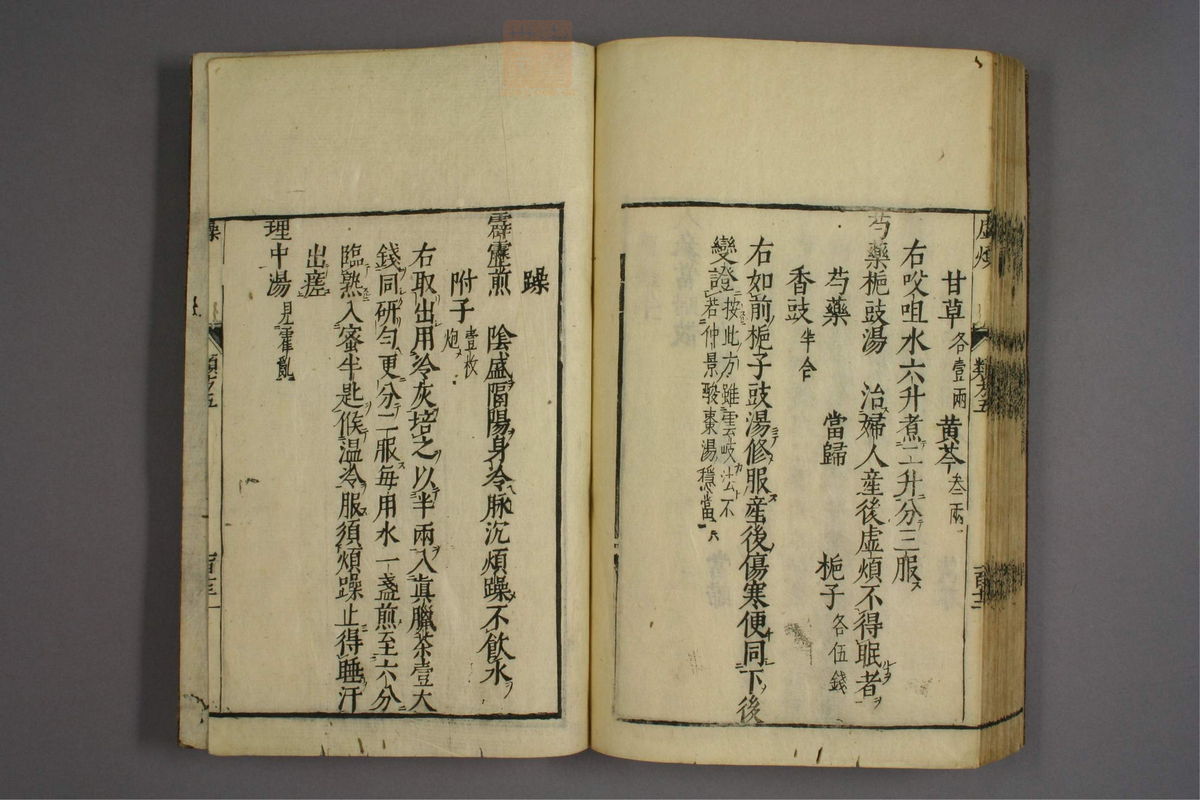 虛煩
類方五
甘草各壹兩 黃芩叁兩
右㕮咀水六升煮二升分三服
芍藥梔豉湯 治婦人產後虛煩不得眠者
芍藥 當歸 梔子各伍錢
香豉半合
右如前梔子豉湯修服產後傷寒便同下後
變證按此方雖云岐法不
若仲景酸棗湯穩當
躁
霹靂煎 陰盛隔陽身冷脉沉煩躁不飲水
附子壹枚
炮
右取出用冷灰培之以半兩入眞臘茶壹大
錢同研勻更分二服每用水一盞煎至六分
臨熟入蜜半匙候溫冷服須煩躁止得睡汗
出瘥
理中湯見霍亂
躁
類方五